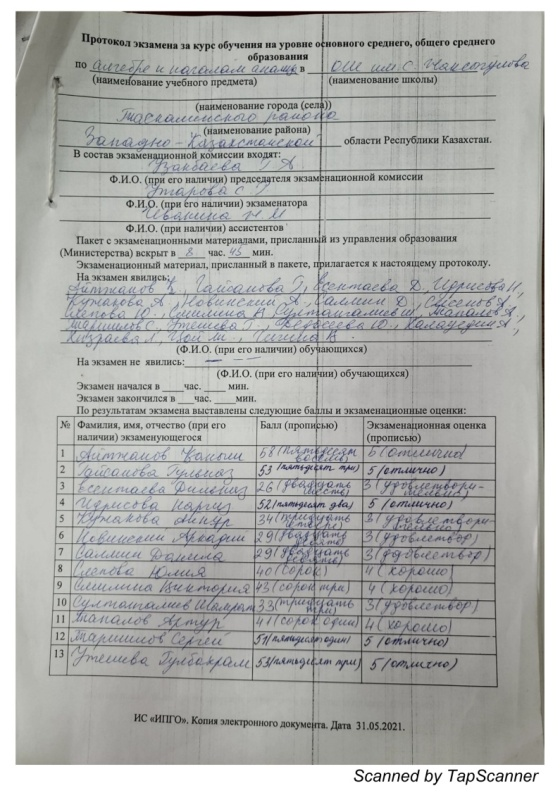 Протокол экзамена за курс обучения на уровне основного среднего, общего среднего
образования
по алгебре и началам анализа в ОШ им.С.
(наименование учебного предмета) (наименование школы)
(наименование города (села))
Таскалинского района
(наименование района)
Западно-Казахстанской области Республики Казахстан.
В состав экзаменационной комиссии входят:
Ф.И.О. (при его наличии) председателя экзаменационной комиссии
Утарова С Г
Ф.И.О. (при его наличии) экзаменатора
Иванина Н М
Ф.И.О. (при наличии) ассистентов
Пакет с экзаменационными материалами, присланный из управления образования
(Министерства) вскрыт в 8 час. 45 мин.
Экзаменационный материал, присланный в пакете, прилагается к настоящему протоколу.
На экзамен явились:
Айтжанов К, Гайсанова Г, Есентаева Д, Идрисова Н,
Кужакова А, Новинский А, Саллин Д,
Слепова Ю, Смилина В, Султангалиев Ш, Тапалов А,
Таришилов С, Утешева Г, Федосеева Ю,
Цой М,
(Ф.И.О. (при его наличии) обучающихся)
На экзамен не явились:
(Ф.И.О. (при его наличии) обучающихся)
Экзамен начался в ____час. ____ мин.
Экзамен закончился в ____час. ____мин.
По результатам экзамена выставлены следующие баллы и экзаменационные оценки:
№ Фамилия, имя, отчество (при его наличии) экзаменующегося Балл (прописью) Экзаменационная оценка (прописью)
1 Айтжанов 58 (пятьдесят восемь) 5 (отлично)
2 Гайсанова Гульназ 53 (пятьдесят три) 5 (отлично)
3 Есентаева Дильназ 26 (двадцать шесть) 3 (удовлетворительно)
4 Идрисова Наргиз 52 (пятьдесят два) 5 (отлично)
5 Кужакова 34 (тридцать четыре) 3 (удовлетворительно)
6 Новинский Аркадий 29 (двадцать девять) 3 (удовлетвор)
7 Саллин Данела 29 (двадцать девять) 3 (удовлетвор)
8 Слепова Юлия 40 (сорок) 4 (хорошо)
9 Смилина Виктория 43 (сорок три) 4 (хорошо)
10 Султангалиев 33 (тридцать три) 3 (удовлетвор)
11 Тапалов Артур 41 (сорок один) 4 (хорошо)
12 Таришилов Сергей 51 (пятьдесят один) 5 (отлично)
13 Утешева Гулбахрам 53 (пятьдесят три) 5 (отлично)
ИС «ИПГО». Копия электронного документа. Дата 31.05.2021.
Scanned by TapScanner